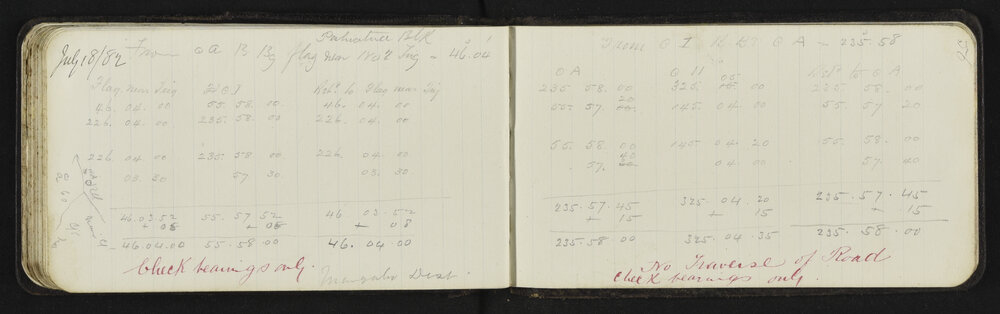 July 18/82
From ⊙ A R Bg flag near West Trig = 46° 04'
Flag near Trig ⊙ I Ret. to Flag near Trig
46. 04. 00 55. 58. 00. 46. 04. 00
226. 04. 00 235. 58. 00 226. 04. 00
226 04. 00 235. 58. 00 226. 04. 00
03. 30 57 30 03. 30
46. 03. 52 55. 57. 52 46. 03. 52
+ 08 + 08 + 08
46. 04. 00 55. 58. 00 46. 04. 00
Check bearings only.
Dist.
From ⊙ I R Bg ⊙ A = 235° 58
⊙ A ⊙ H Ret. to ⊙ A
05
235 58. 00 325. 05. 00 235 58. 00
20
55. 57. 00 145 04. 00 55. 57 20
55. 58. 00 145 04. 20 55. 58. 00
40
57. 30 04. 00 57. 40
235. 57. 45 325 04. 20 235. 57. 45
+ 15 + 15 + 15
235. 58. 00 325 04. 35 235. 58. 00
No Traverse of Road
Check bearings only.